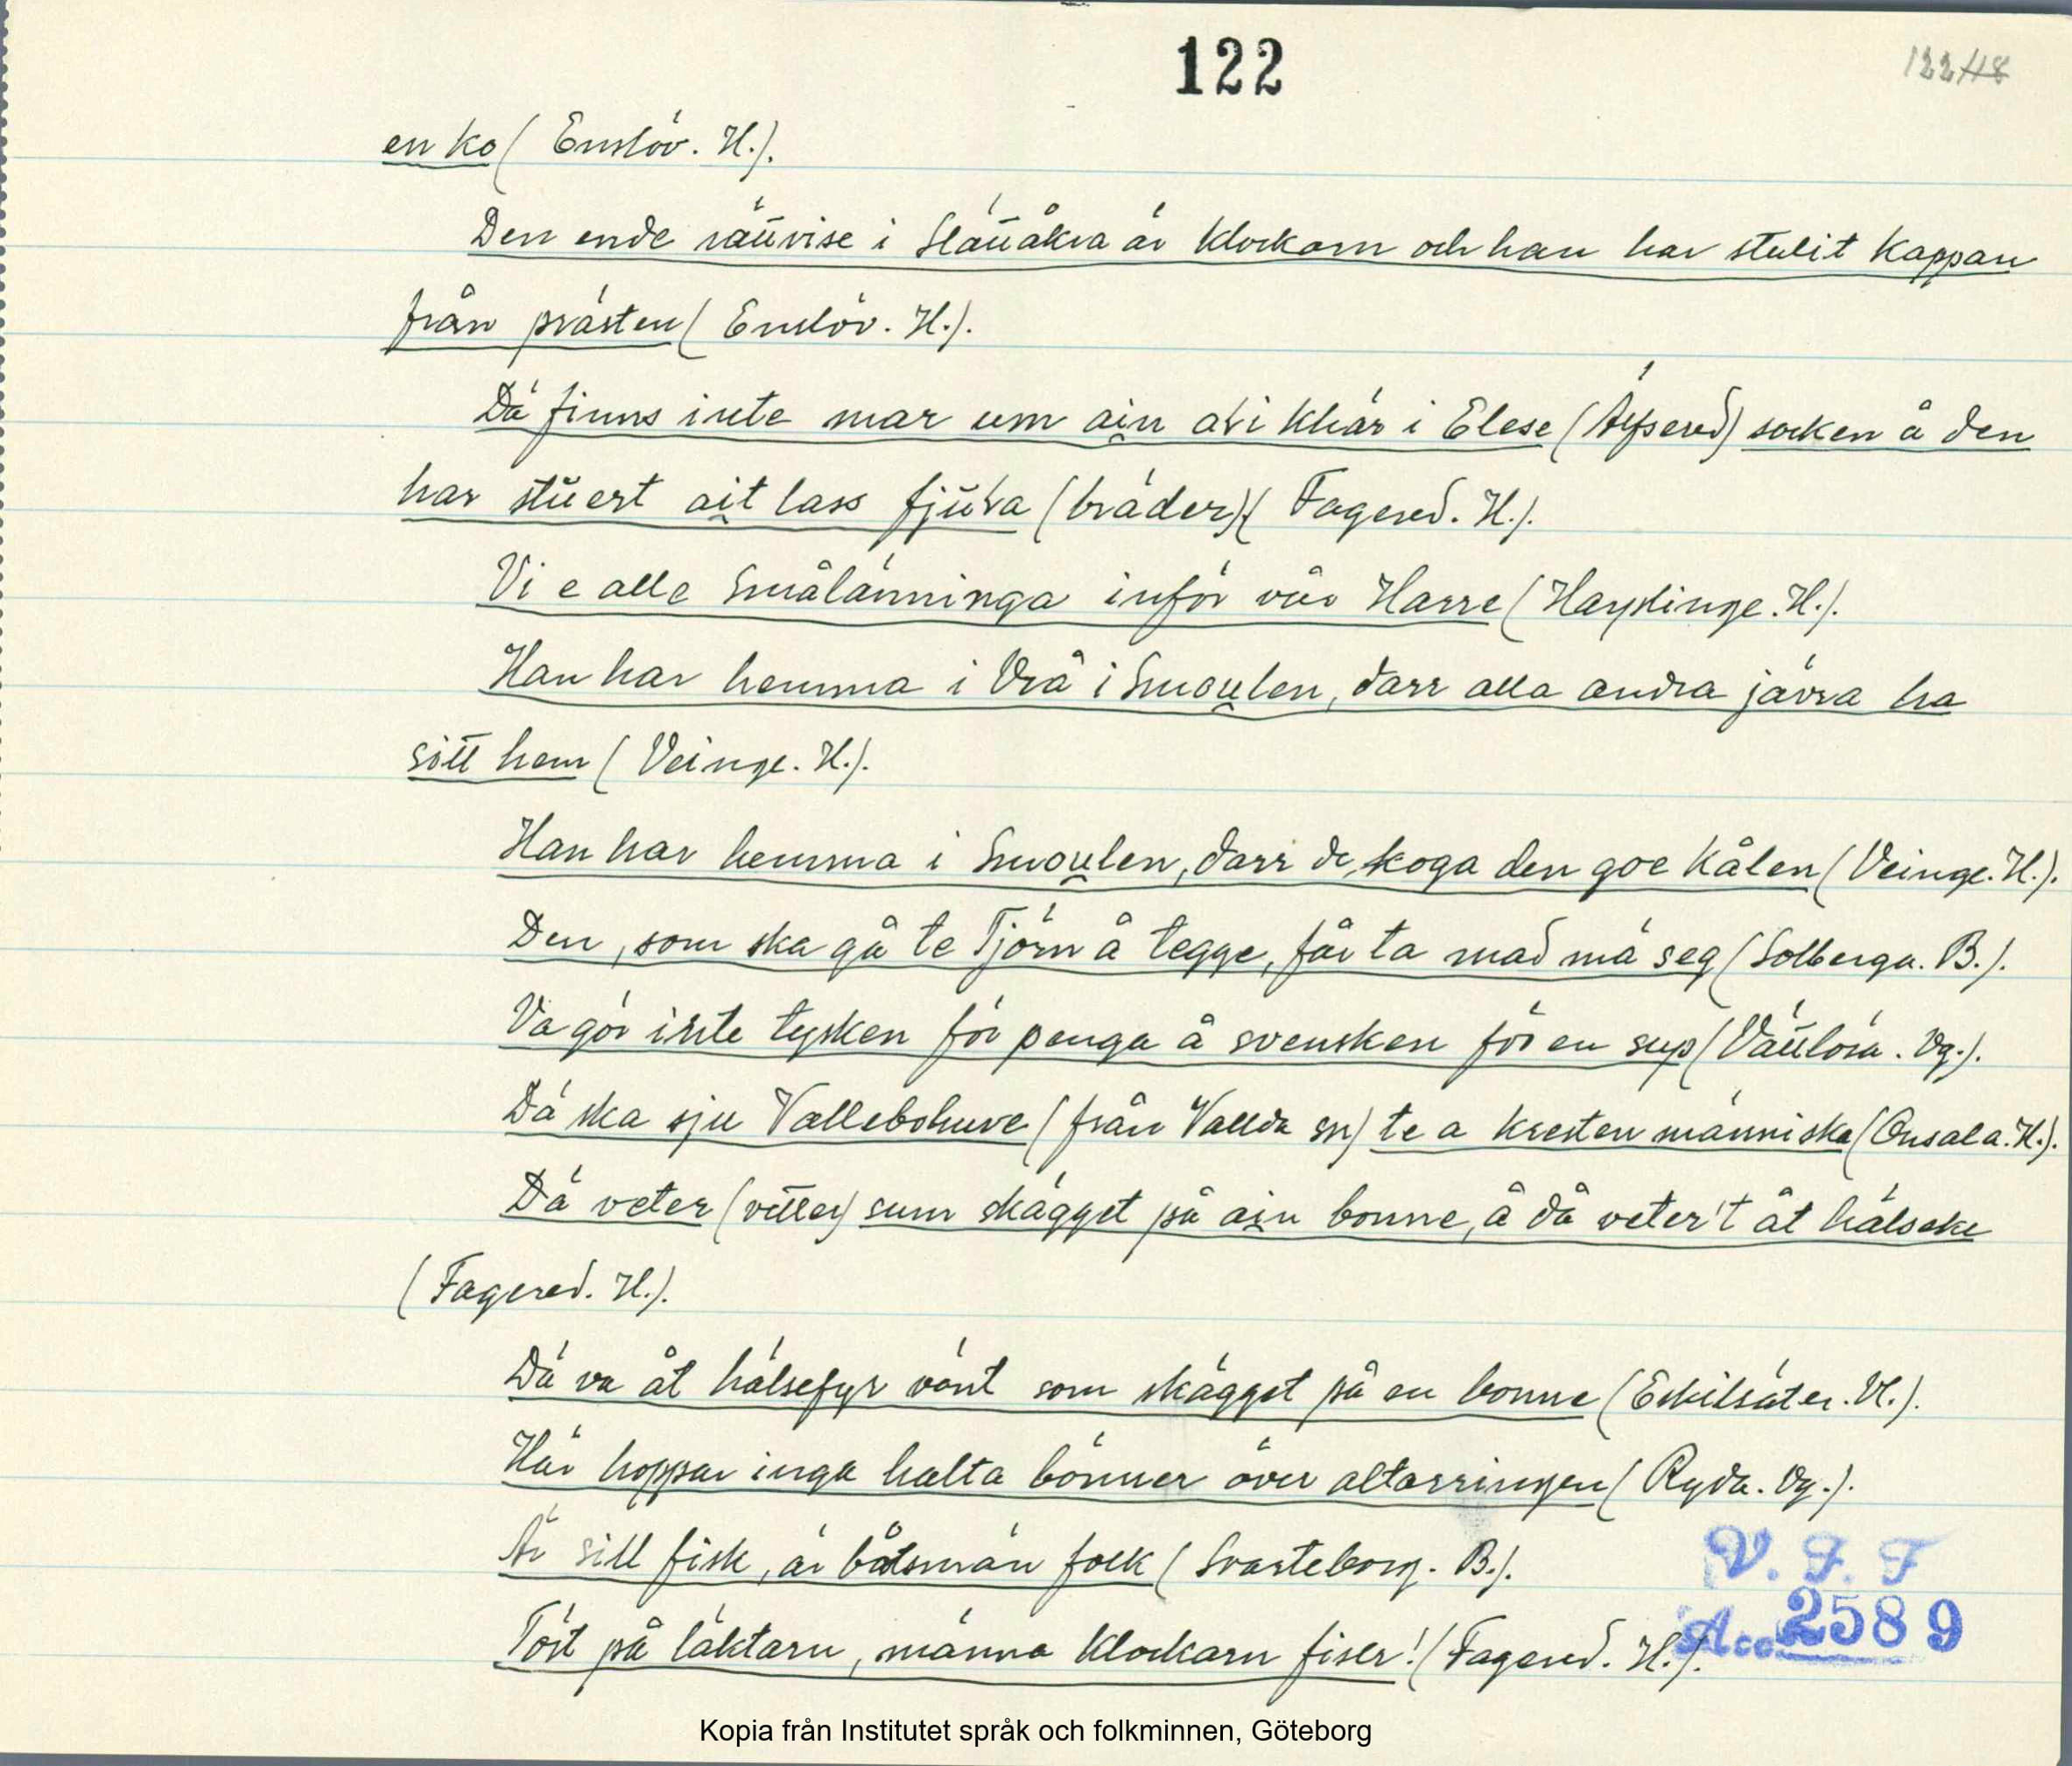 122
122 118
en ko (Enslöv. H.).
Den ende rättvise i Slättåkra är klockarn och han har stulit kappan
från prästen (Enslöv. H.).
Dä finns inte mar um ain i Elese (Älfsered) socken å den
har ait lass (bräder) (Fagered. H.).
Vi e alle Smålänninga inför vår Harre (Harplinge. H.).
Han har hemma i Vrå i Smoulen, darr alla andra jävra ha
sitt hem (Veinge. H.).
Han har hemma i Smoulen, darr de koga den goe kålen (Veinge. H.).
Den, som ska gå te Tjörn å tegge, får ta mad mä seg (Solberga. B.).
Va gör inte tysken för penga å svensken för en sup (Vättlösa. Vg.).
Dä ska sju Vallebohuve (från Vallda sn) te a kresten människa (Onsala. H.).
Dä veter (vetter) sum skägget på ain bonne, å då veter't åt hälseke
(Fagered. H.).
Dä va åt hälsefyr vänt som skägget på en bonne (Eskilsäter. Vl.).
Här hoppar inga halta bönner över altarringen (Ryda. Vg.).
Är sill fisk, är båtsmän folk (Svarteborg. B.).
Töst på läktarn, männa klockarn fiser! (Fagered. H.).
V. F. F
Acc. 2589
Kopia från Institutet språk och folkminnen, Göteborg